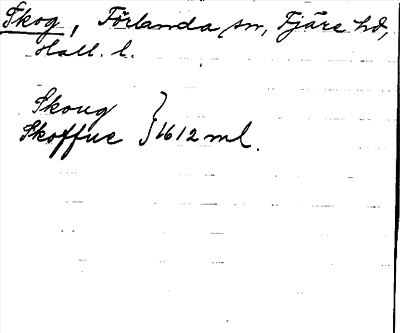 Skog, Förlanda sn, Fjäre hd,
Hall. l.
Skoug
Skoffue } 1612 ml.